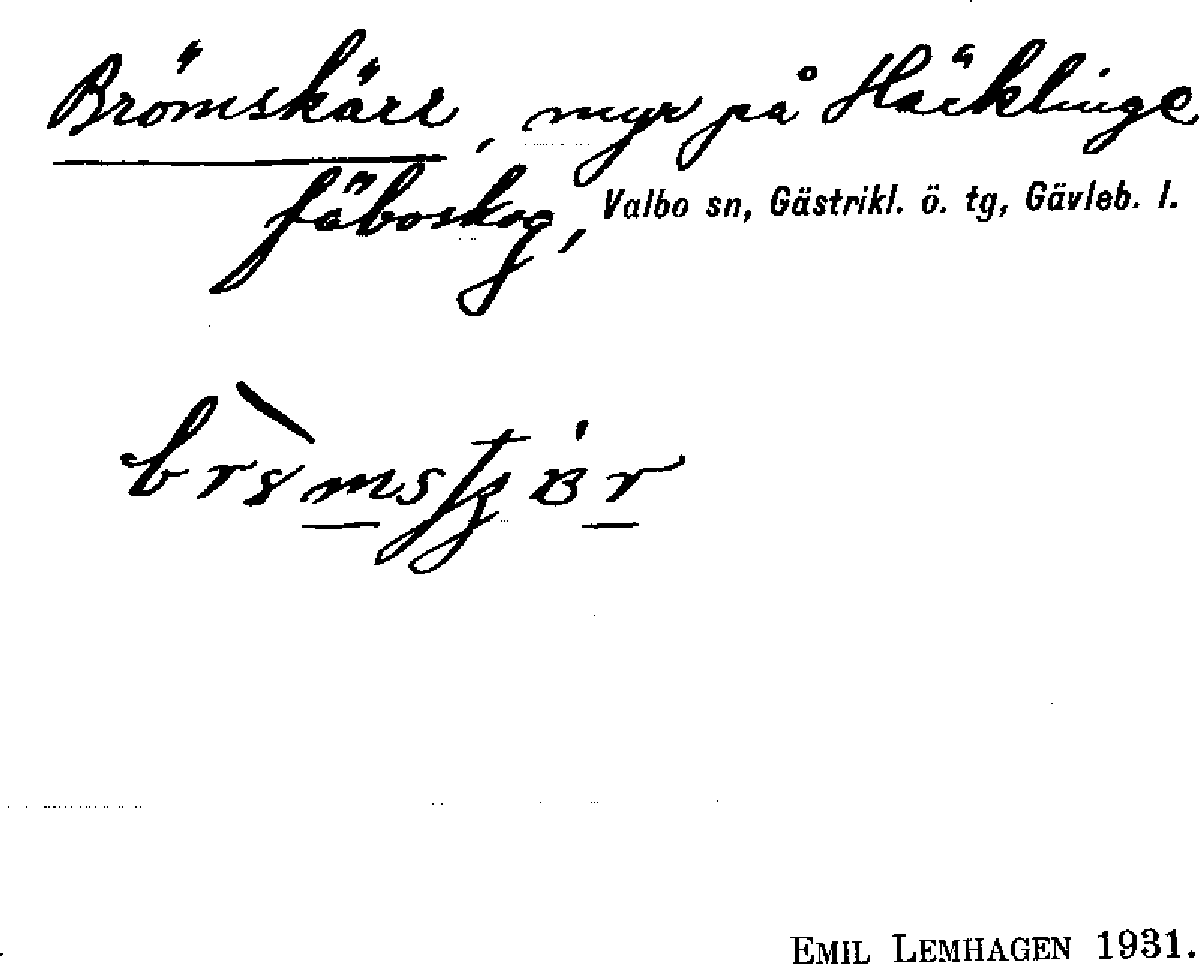 Brömskärr, myr på Häcklinge
fäboskog, Valbo sn, Gästrikl. ö. tg, Gävleb. l.
EMIL LEMHAGEN 1931.